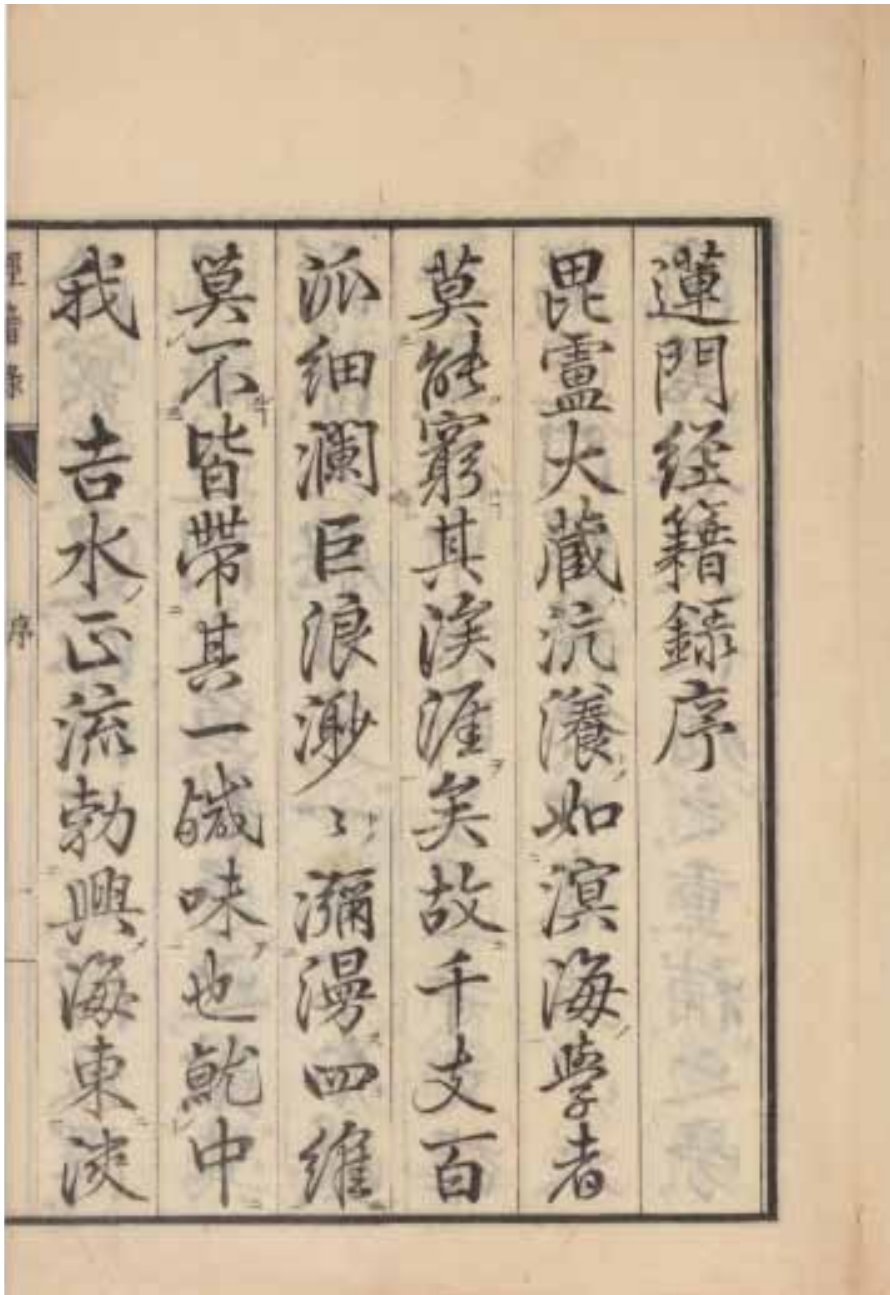 蓮門経籍録序
毘盧大蔵沆瀁如溟海學者
莫能窮其涘涯矣故千支百
派細瀾巨浪渺〻瀰漫四維
莫不皆帶其一鹹味也就中
我　吉水正流勃興海東淡
經籍録
序